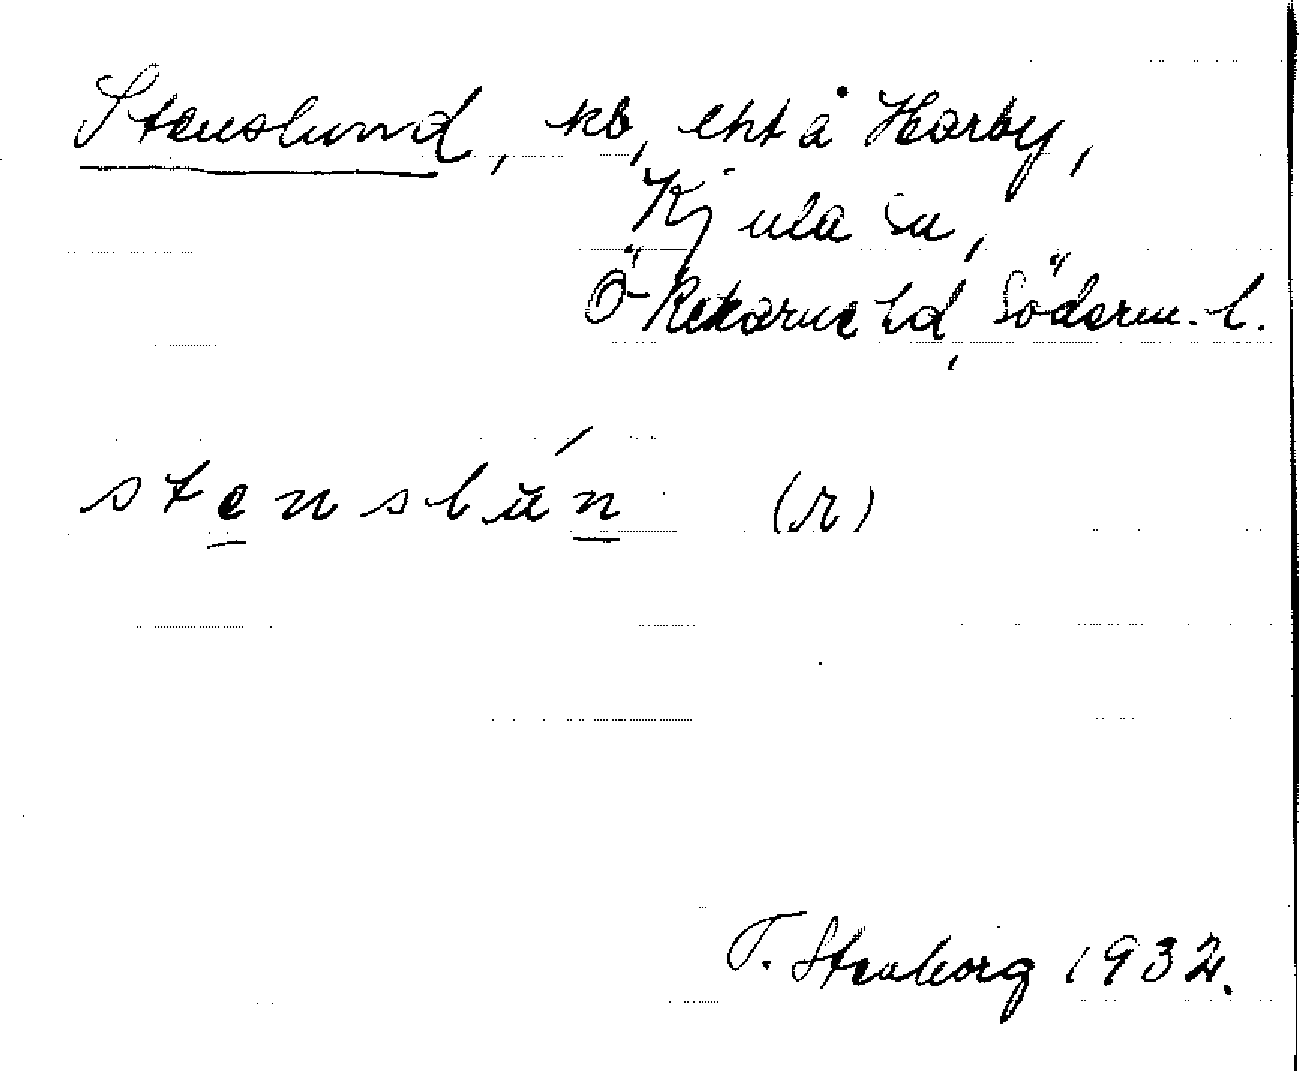 Stenslund, kb, lht å Harby,
Kjula sn,
Ö Rekarne hd, Söderm. l.
stenslún (r)
T. Stenborg 1932.